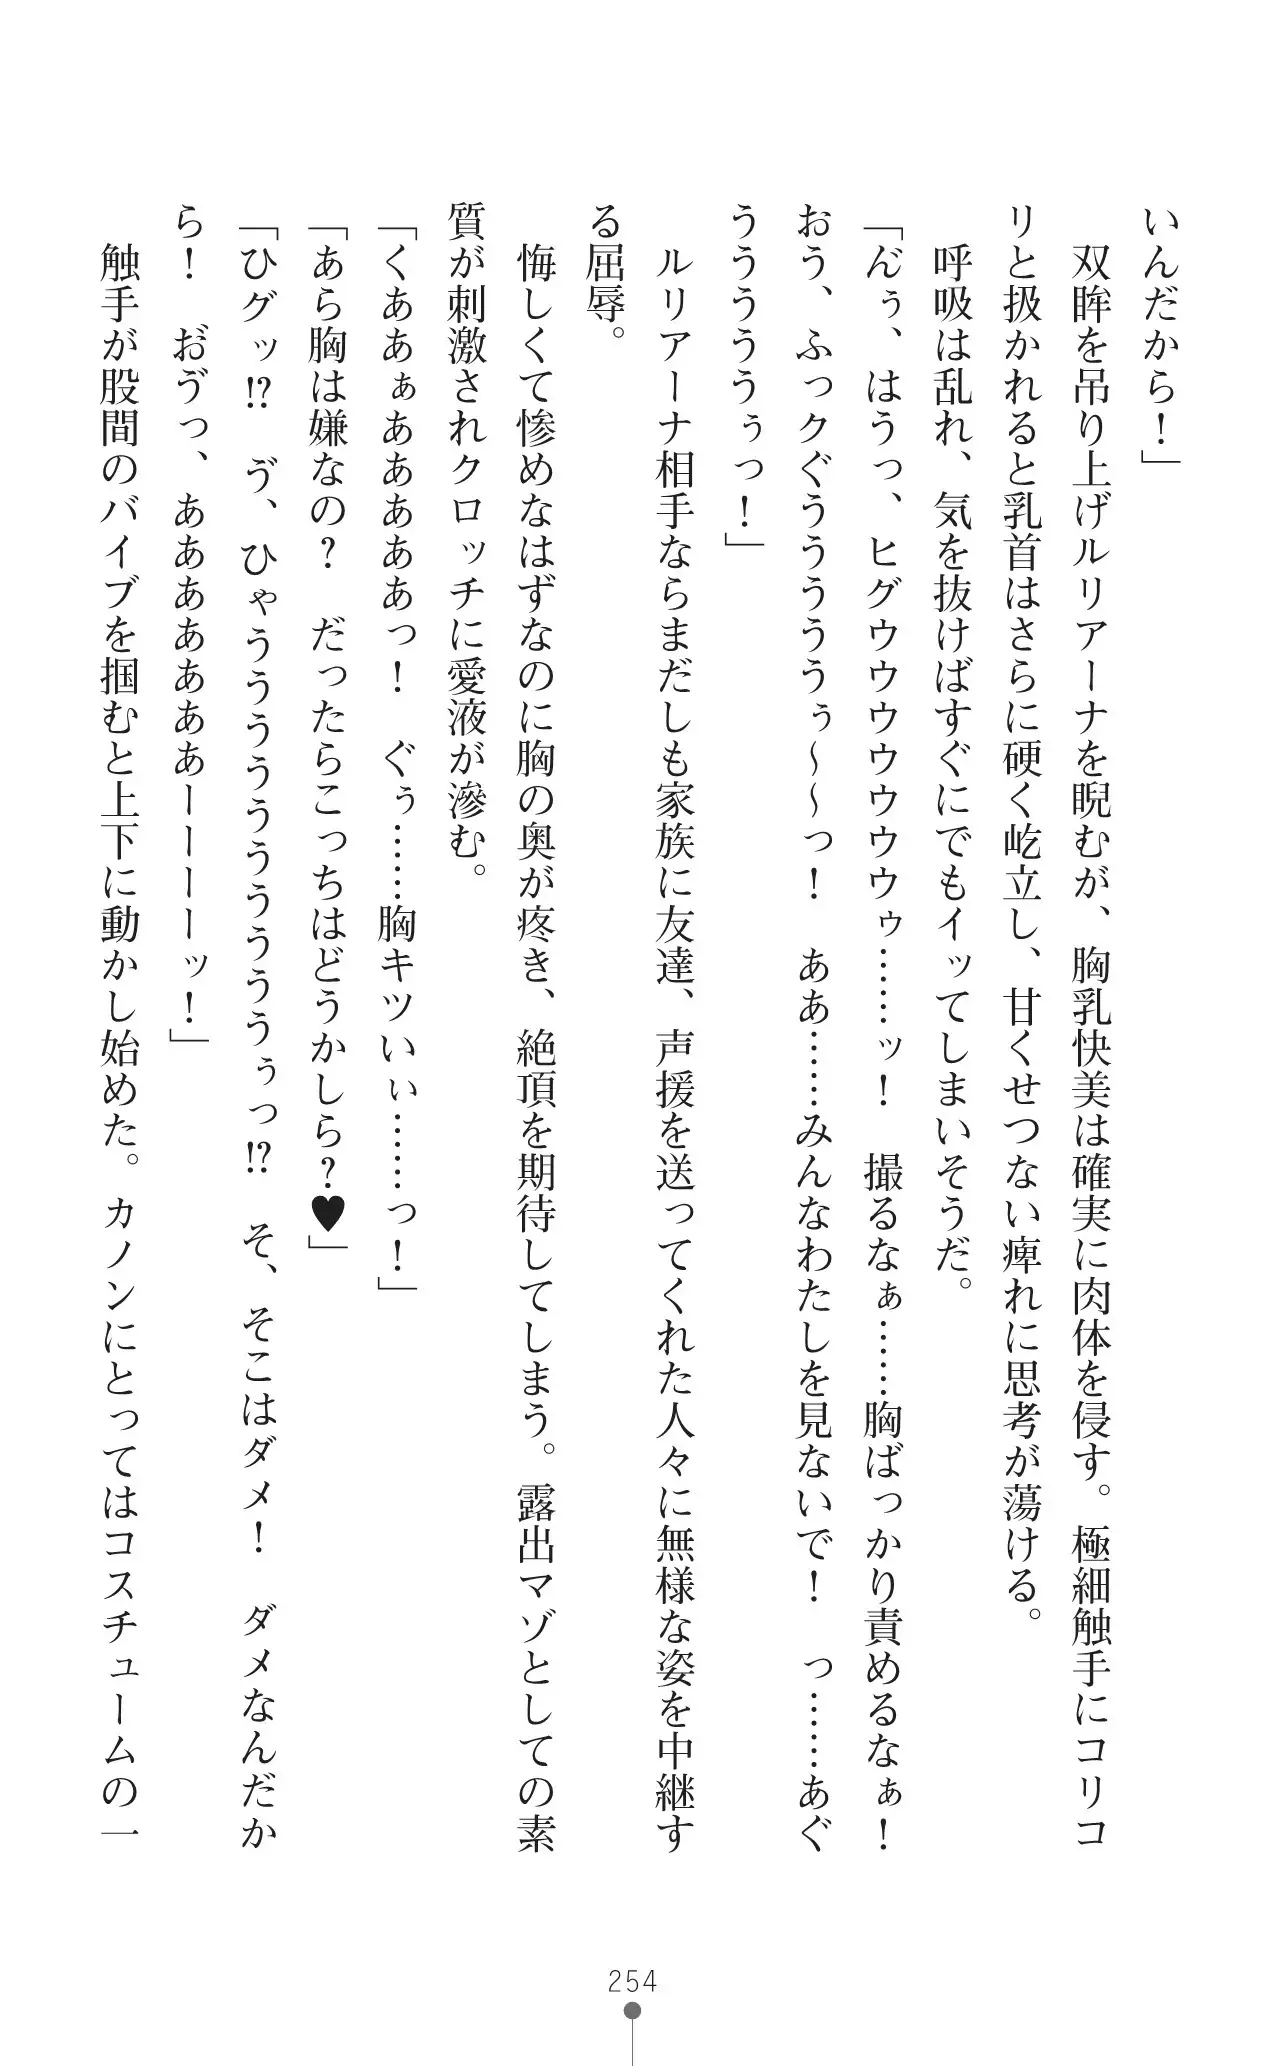 いんだから！」
　双眸を吊り上げルリアーナを睨むが、胸乳快美は確実に肉体を侵す。極細触手にコリコ
リと扱かれると乳首はさらに硬く屹立し、甘くせつない痺れに思考が蕩ける。
　呼吸は乱れ、気を抜けばすぐにでもイッてしまいそうだ。
「ん゙ぅ、はうっ、ヒグウウウウウウウゥ……ッ！　撮るなぁ……胸ばっかり責めるなぁ！
おう、ふっクぐうううううぅ～～っ！　ああ……みんなわたしを見ないで！　っ……あぐ
うううううぅっ！」
　ルリアーナ相手ならまだしも家族に友達、声援を送ってくれた人々に無様な姿を中継す
る屈辱。
　悔しくて惨めなはずなのに胸の奥が疼き、絶頂を期待してしまう。露出マゾとしての素
質が刺激されクロッチに愛液が滲む。
「くあぁぁああああっ！　ぐぅ……胸キツいぃ……っ！」
「あら胸は嫌なの？　だったらこっちはどうかしら？♥」
「ひグッ!?　ゔ、ひゃうううううううううぅっ!?　そ、そこはダメ！　ダメなんだか
ら！　お゙ゔっ、あああああああーーーーッ！」
　触手が股間のバイブを掴むと上下に動かし始めた。カノンにとってはコスチュームの一
254